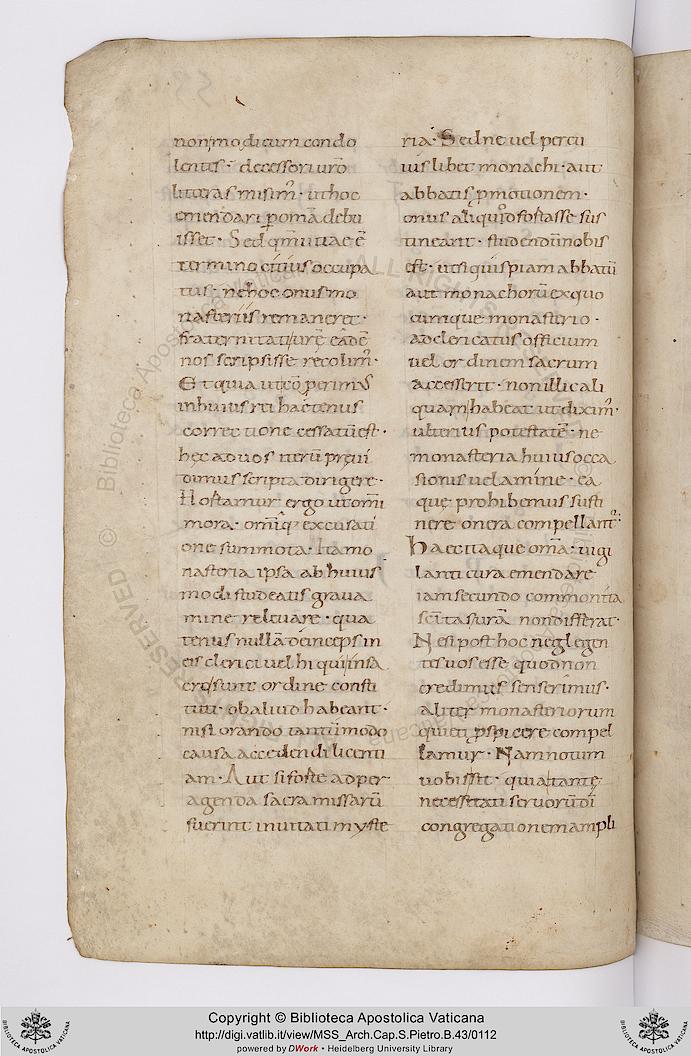 non modicum condo
lentes · decessori uro
litteras misim̄ · ut hoc
emendari p omā debu
isset · Sed qm̄ uitae ē
termino citius occupa
tus · ne hoc onus mo
nasteriis remaneret ·
fraternitati urē eadē
nos scripsisse recolim̄ ·
Et quia ut cōperimus
in huius rei hactenus
correctione cessatū est ·
hęc ad uos iterū pręui
dimus scripta dirigere ·
Hostamur ergo ut omī
mora · omīq; excusati
one summota · Ita mo
nasteria ipsa ab huius
modi studeatis graua
mine releuare · qua
tenus nullā deinceps in
eis clerici uel hi qui in sa
cro sunt ordine consti
tuti · ob aliud habeant ·
nisi orando tantūmodo
causa accedendi licenti
am · Aut si forte ad per
agenda sacra missarū
fuerint inuitati myste
ria · Sed ne uel pecu
iuslibet monachi · aut
abbatis p motionem ·
onus aliquid fortasse sus
tineant · studendū nobis
est · ut si quispiam abbatū
aut monachorū ex quo
cumque monasterio ·
ad clericatus officium
uel ordinem sacrum
accesserit · non illic ali
quam habeat ut dixim̄ ·
ulterius potestatē · ne
monasteria huius occa
sionis uelamine · ea
quę prohibemus susti
nere onera compellant̄ ·
Haec itaque omā · uigi
lanti cura emendare
iam secundo commonita
scītas urā non differat ·
Ne si post hoc neglegen
tes uos esse quod non
credimus senserimus ·
aliter monasteriorum
quieti pspicere compel
lamur · Nam notum
uobis sit · quia tantę
necessitati seruorū dī
congregationem ampli
Copyright © Biblioteca Apostolica Vaticana
http://digi.vatlib.it/view/MSS_Arch.Cap.S.Pietro.B.43/0112
powered by DWork • Heidelberg University Library